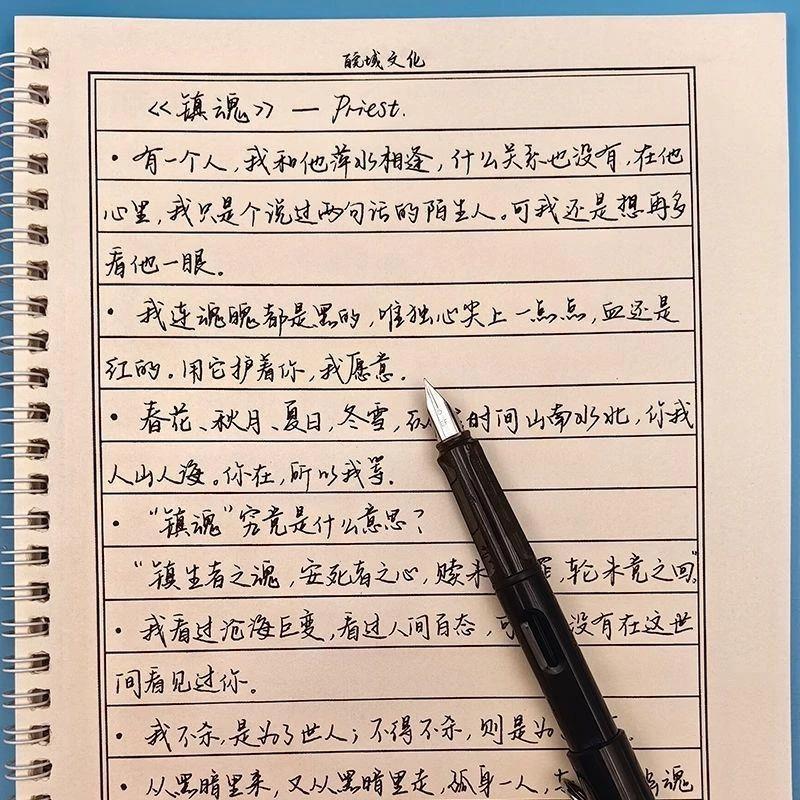 皖域文化
《镇魂》— Priest.
· 有一个人，我和他萍水相逢，什么关系也没有，在他
心里，我只是个说过两句话的陌生人。可我还是想再多
看他一眼。
· 我连魂魄都是黑的，唯独心尖上一点点，血还是
红的。用它护着你，我愿意。
· 春花、秋月、夏日、冬雪，时间山南水北，你我
人山人海。你在，所以我等.
· “镇魂”究竟是什么意思？
“镇生者之魂，安死者之心，赎未，轮未竟之回”
· 我看过沧海巨变，看过人间百态，没有在这世
间看见过你。
· 我不杀，是为了世人；不得不杀，则是为
· 从黑暗里来，又从黑暗里走，孤身一人，魂